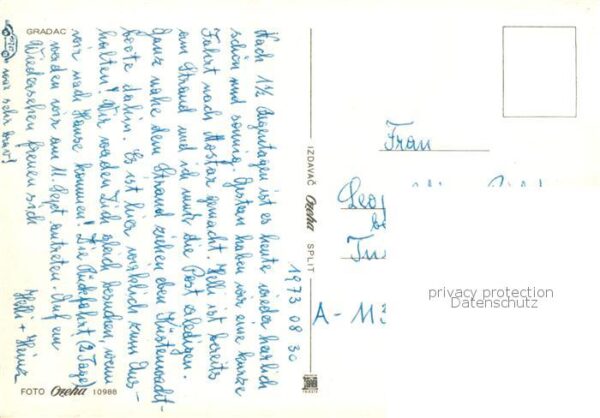 GRADAC
Nach 1½ Regentagen ist es heute wieder herrlich
schön und sonnig. Gestern haben wir eine kurze
Fahrt nach Mostar gemacht. Helli ist bereits
am Strand und ich muß die Post erledigen.
Ganz nahe dem Strand ziehen eben Küstenwacht-
boote dahin. Es ist hier wirklich zum Aus-
halten! Wir werden Dich gleich besuchen, wenn
wir nach Hause kommen! Die Rückfahrt (2 Tage)
werden wir am 11. Sept. antreten. Auf ein
Wiedersehen freuen sich
Helli + Heinz
war sehr brav!
1973 08 30
IZDAVAČ Ozeha SPLIT
FOTO Ozeha 10988
Frau
A-113
privacy protection
Datenschutz